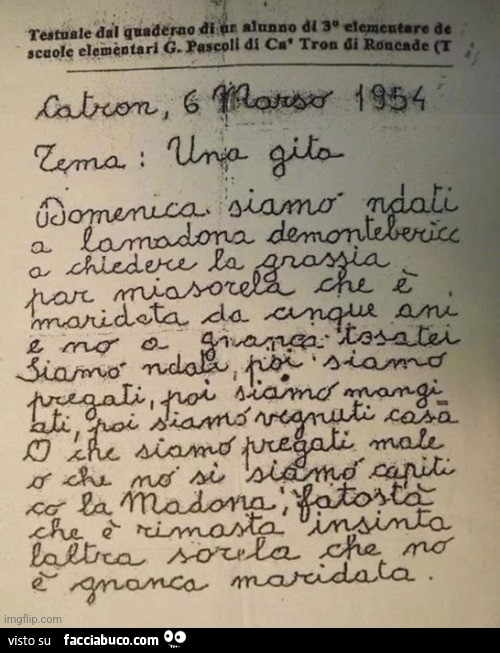 Testuale dal quaderno di un alunno di 3º elementare de
scuole elementari G. Pascoli di Ca' Tron di Roncade (T
Catron, 6 Marso 1954
Tema: Una gita
Domenica siamo ndati
a lamadona demontebericc
a chiedere la grassia
par miasorela che è
maridata da cinque ani
e no a gnanca tosatei
Siamo ndati, poi siamo
pregati, poi siamo mangi
ati, poi siamo vegnuti casa
O che siamo pregati male
o che no si siamo capiti
co la Madona, fatostà
che è rimasta insinta
laltra sorela che no
è gnanca maridata.
imgflip.com
visto su facciabuco.com